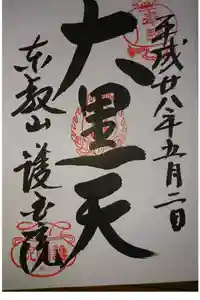 平成廿八年五月二日
大黒天
東叡山 護国院